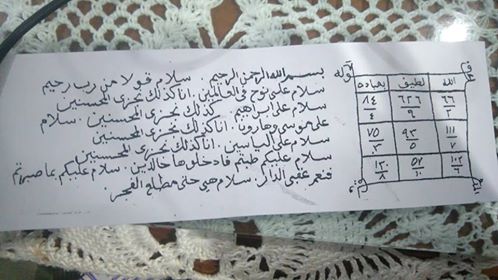 الله لطيف بعباده
٦٦ ٦٢٦ ٨٤
٢ ٩ ٤
١١١ ٩٣ ٧٥
٧ ٥ ٣
١٠٢
٦ ٨
بسم الله الرحمن الرحيم . سلام قولا من رب رحيم
سلام على نوح في العالمين . انا كذلك نجزى المحسنين
سلام على ابراهيم . كذلك نجزى المحسنين . سلام
على موسى وهارون . انا كذلك نجزى المحسنين
سلام على الياسين . انا كذلك نجزى المحسنين
سلام عليكم طبتم فادخلوها خالدين . سلام عليكم بما صبرتم
فنعم عقبى الدار . سلام هى حتى مطلع الفجر .